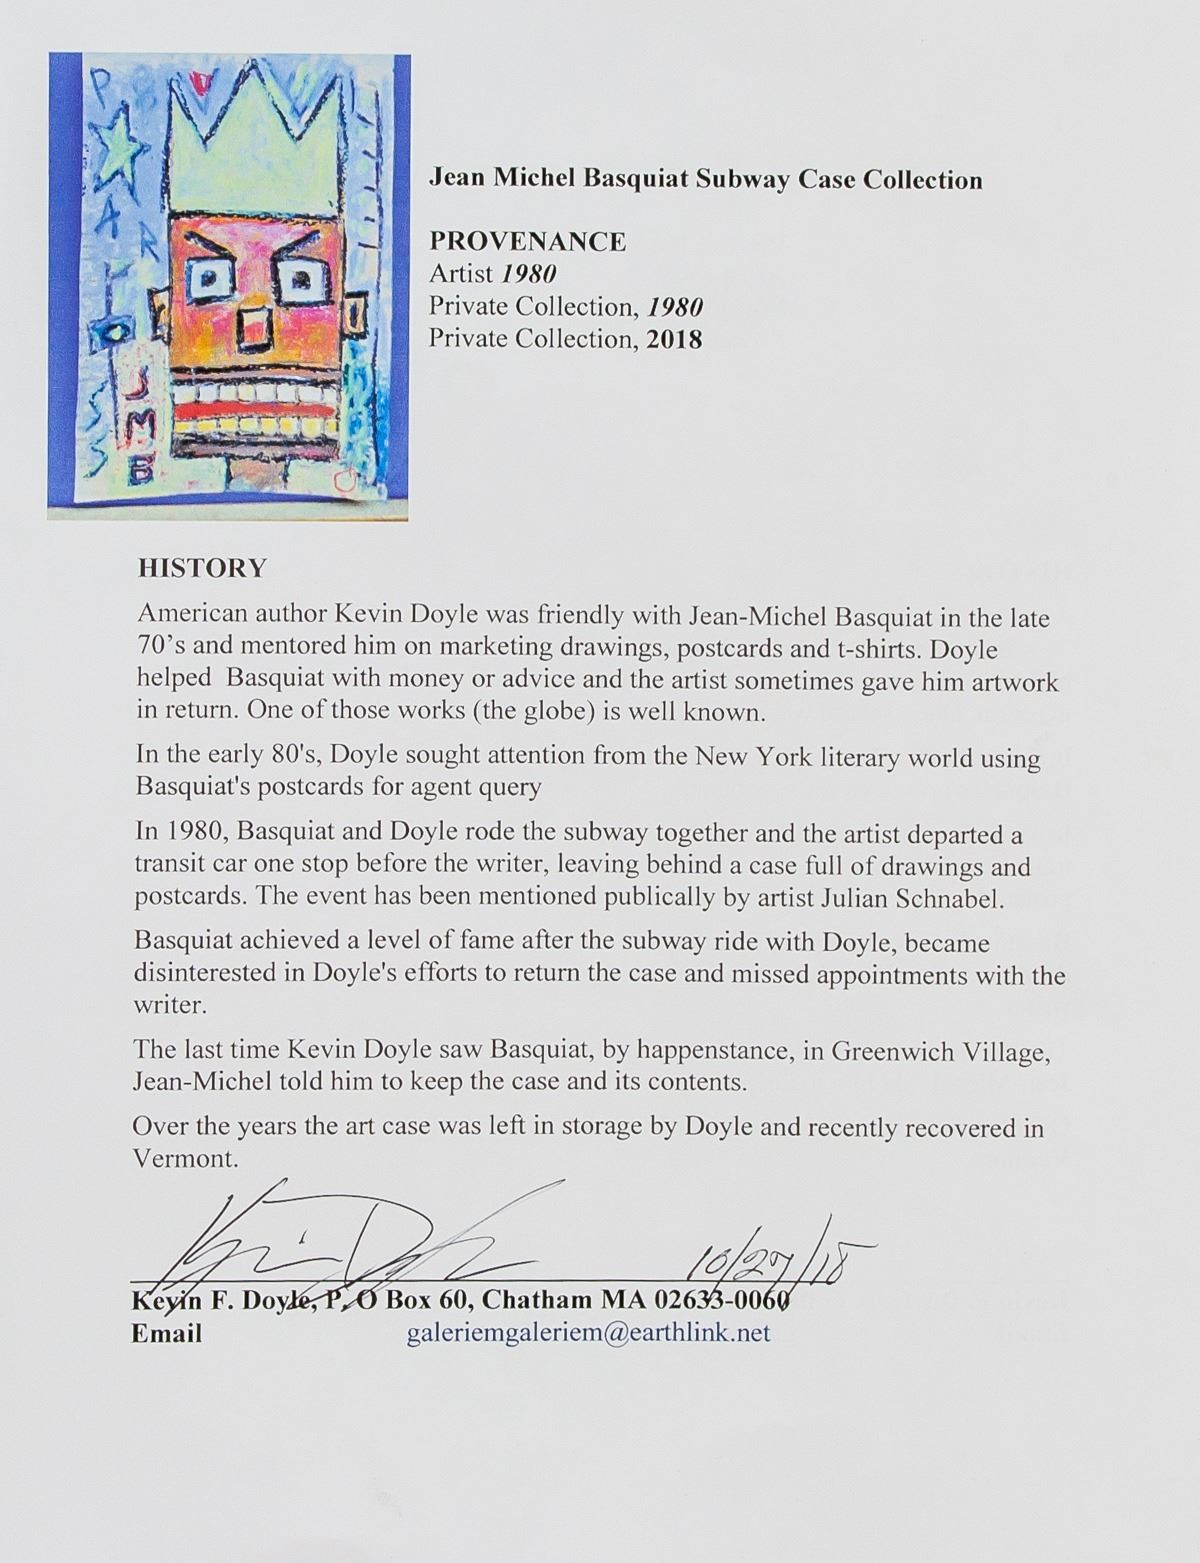 P
A
R
I
S
S
JMB
Jean Michel Basquiat Subway Case Collection
PROVENANCE
Artist 1980
Private Collection, 1980
Private Collection, 2018
HISTORY
American author Kevin Doyle was friendly with Jean-Michel Basquiat in the late
70's and mentored him on marketing drawings, postcards and t-shirts. Doyle
helped  Basquiat with money or advice and the artist sometimes gave him artwork
in return. One of those works (the globe) is well known.
In the early 80's, Doyle sought attention from the New York literary world using
Basquiat's postcards for agent query
In 1980, Basquiat and Doyle rode the subway together and the artist departed a
transit car one stop before the writer, leaving behind a case full of drawings and
postcards. The event has been mentioned publically by artist Julian Schnabel.
Basquiat achieved a level of fame after the subway ride with Doyle, became
disinterested in Doyle's efforts to return the case and missed appointments with the
writer.
The last time Kevin Doyle saw Basquiat, by happenstance, in Greenwich Village,
Jean-Michel told him to keep the case and its contents.
Over the years the art case was left in storage by Doyle and recently recovered in
Vermont.
10/27/18
Kevin F. Doyle, P. O Box 60, Chatham MA 02633-0060
Email galeriemgaleriem@earthlink.net